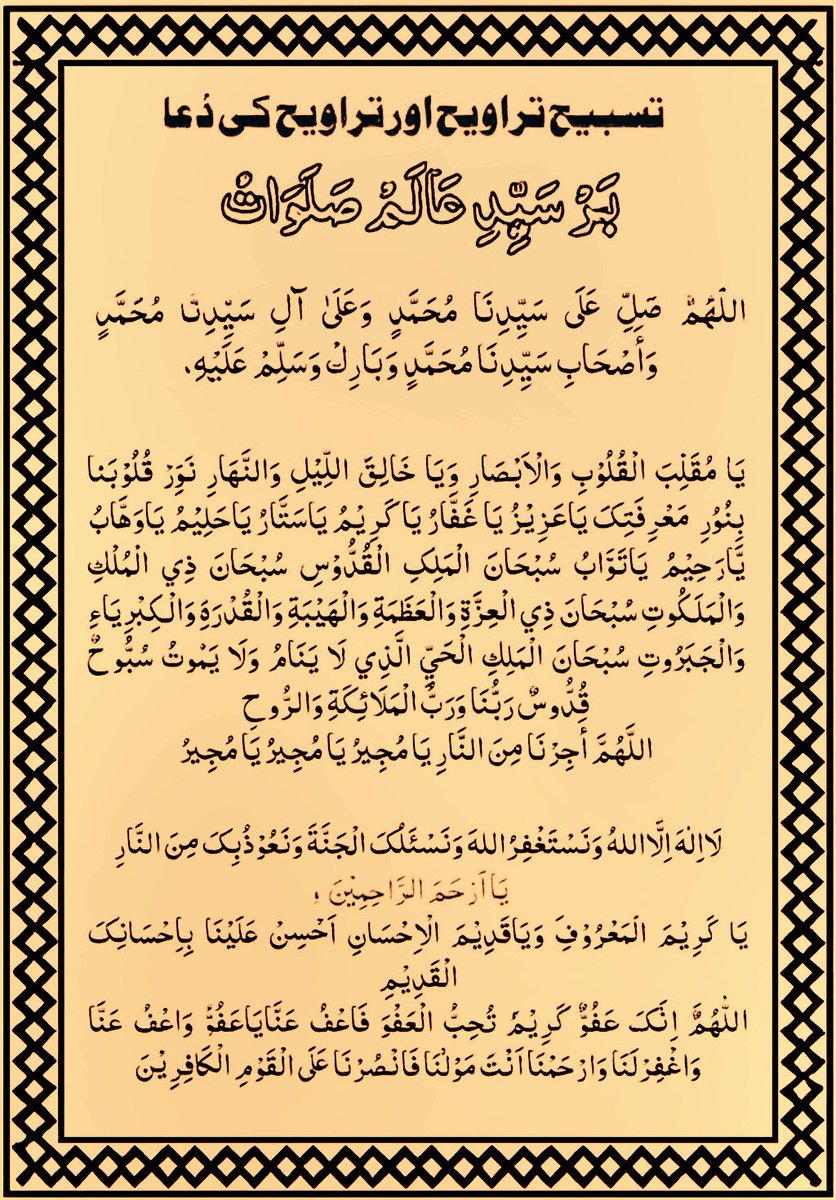 تسبیح تراویح اور تراویح کی دُعا
بَرْ سَیِّدِ عَالَمْ صَلَوَاتْ
اللّٰهُمَّ صَلِّ عَلَى سَيِّدِنَا مُحَمَّدٍ وَعَلَىٰ آلِ سَيِّدِنَا مُحَمَّدٍ
وَأَصْحَابِ سَيِّدِنَا مُحَمَّدٍ وَبَارِكْ وَسَلِّمْ عَلَيْهِ.
يَا مُقَلِّبَ الْقُلُوْبِ وَالْاَبْصَارِ وَيَا خَالِقَ اللَّيْلِ وَالنَّهَارِ نَوِّرْ قُلُوْبَنا
بِنُوْرِ مَعْرِفَتِکَ يَاعَزِيْزُ يَا غَفَّارُ يَا كَرِيْمُ يَاسَتَّارُ يَاحَلِيْمُ يَاوَهَّابُ
يَّارَحِيْمُ يَاتَوَّابُ سُبْحَانَ الْمَلِکِ الْقُدُّوْسِ سُبْحَانَ ذِي الْمُلْکِ
وَالْمَلَكُوتِ سُبْحَانَ ذِي الْعِزَّةِ وَالْعَظَمَةِ وَالْهَيْبَةِ وَالْقُدْرَةِ وَالْكِبْرِيَاءِ
وَالْجَبَرُوتِ سُبْحَانَ الْمَلِكِ الْحَيِّ الَّذِي لَا يَنَامُ وَلَا يَمُوتُ سُبُّوحٌ
قُدُّوسٌ رَبُّنَا وَرَبُّ الْمَلَائِكَةِ وَالرُّوحِ
اللَّهُمَّ أَجِرْنَا مِنَ النَّارِ يَا مُجِيرُ يَا مُجِيرُ يَا مُجِيرُ
لَااِلٰهَ اِلَّااللهُ وَنَسْتَغْفِرُ اللهَ وَنَسْئَلُکَ الْجَنَّةَ وَنَعُوْذُبِکَ مِنَ النَّارِ
يَا اَرْحَمَ الرَّاحِمِيْنَ ،
يَا كَرِيْمَ الْمَعْرُوْفِ وَيَاقَدِيْمَ الْاِحْسَانِ اَحْسِنْ عَلَيْنَا بِاِحْسَانِکَ
الْقَدِيْمِ
اللّٰهُمَّ اِنَّکَ عَفُوٌّ كَرِيْمٌ تُحِبُّ الْعَفْوَ فَاعْفُ عَنَّايَاعَفُوُّ وَاعْفُ عَنَّا
وَاغْفِرْلَنَا وَارْحَمْنَا اَنْتَ مَوْلٰنَا فَانْصُرْنَا عَلَى الْقَوْمِ الْكَافِرِيْنَ